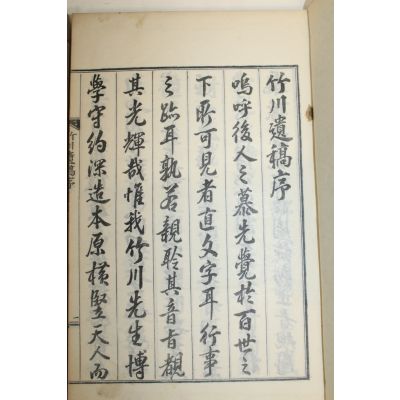 竹川遺稿序
嗚呼後人之慕先覺於百世之
下所可見者直文字耳行事
之跡耳孰若親聆其音旨覩
其光輝哉惟我竹川先生博
學守約深造本原橫竪天人而
竹川遺稿序